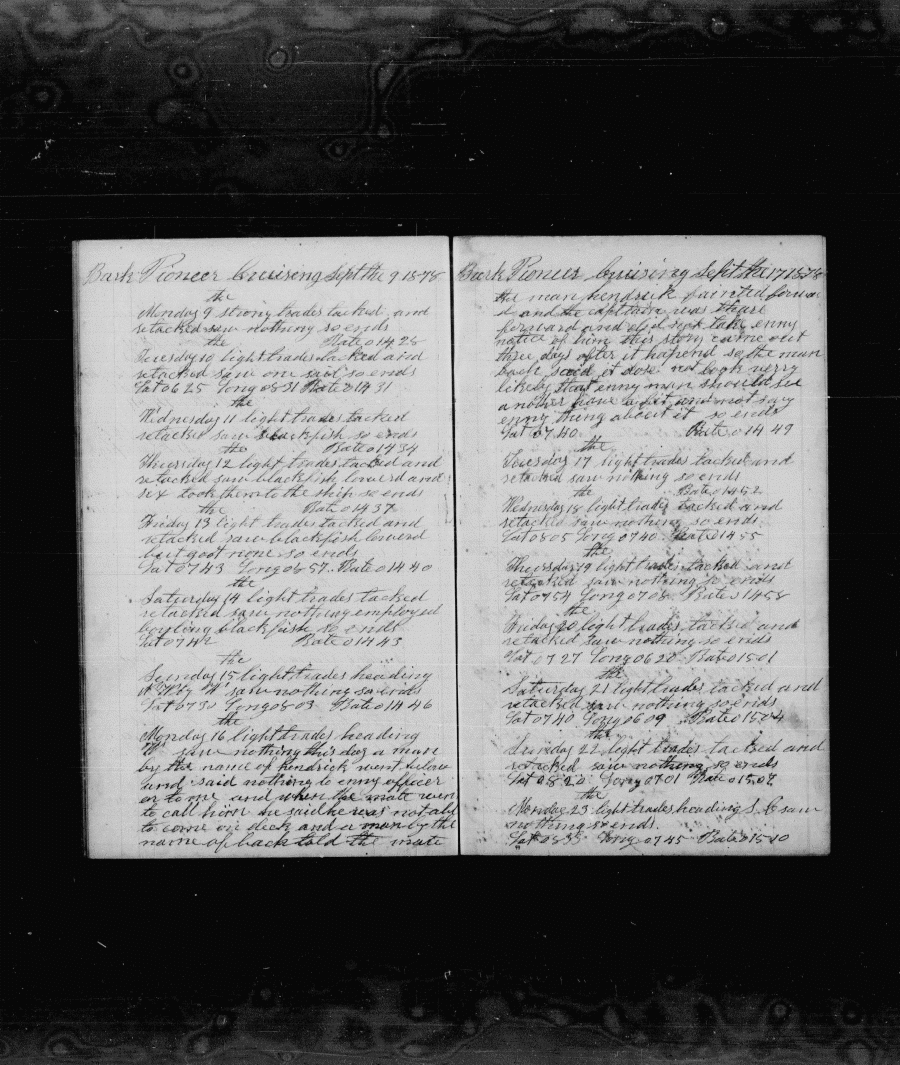 Bark Pioneer Cruising Sept the 9 1878
the
Monday 9 strong trades tacked and
retacked saw nothing so ends
the Rate 0 14 28
Tuesday 10 light trades tacked and
retacked saw one sail so ends
Lat 06 25 Long 08 31 Rate 0 14 31
the
Wednesday 11 light trades tacked
retacked saw blackfish so ends
the Rate 0 14 34
Thursday 12 light trades tacked and
retacked saw blackfish lowerd and
took to the ship so ends
the Rate 0 14 37
Friday 13 light trades tacked and
retacked saw blackfish lowerd
but goot none so ends
Lat 07 43 Long 08 57 Rate 0 14 40
the
Saturday 14 light trades tacked
retacked saw nothing employed
boyling blackfish so ends
Lat 07 42 Rate 0 14 43
the
Sunday 15 light trades heading
W saw nothing so ends
Long 08 03 Rate 0 14 46
the
Monday 16 light trades heading
W saw nothing this day a man
by the name of hendrick went below
and said nothing to enny officer
or to me and when the mate wen
to call him he said he was not abl
to come on deck and a man by the
name of back told the mate
Bark Pioneer Cruising Sept the 17 1878
the man hendrick fainted forwar
d and the captain was there
forward and did not take enny
notice of him this story came out
three days after it hapend so the man
back said it dose not look verry
likely that enny man should see
another have a fit and not say
enny thing about it so ends
Lat 07 40 Rate 0 14 49
the
Tuesday 17 light trades tacked and
retacked saw nothing so ends
the Rate 0 14 52
Wednesday 18 light trades tacked and
retacked saw nothing so ends
Lat 08 05 Long 07 40 Rate 0 14 55
the
Thursday 19 light trades tacked and
retacked saw nothing so ends
Lat 07 54 Long 07 08 Rate 0 14 58
the
Friday 20 light trades tacked and
retacked saw nothing so ends
Lat 07 27 Long 06 20 Rate 0 15 01
the
Saturday 21 light trades tacked and
retacked saw nothing so ends
Lat 07 40 Long 06 09 Rate 0 15 04
the
Sunday 22 light trades tacked and
retacked saw nothing so ends
Lat 08 20 Long 07 01 Rate 0 15 07
the
Monday 23 light trades heading S E saw
nothing so ends
Lat 08 35 Long 07 45 Rate 0 15 10